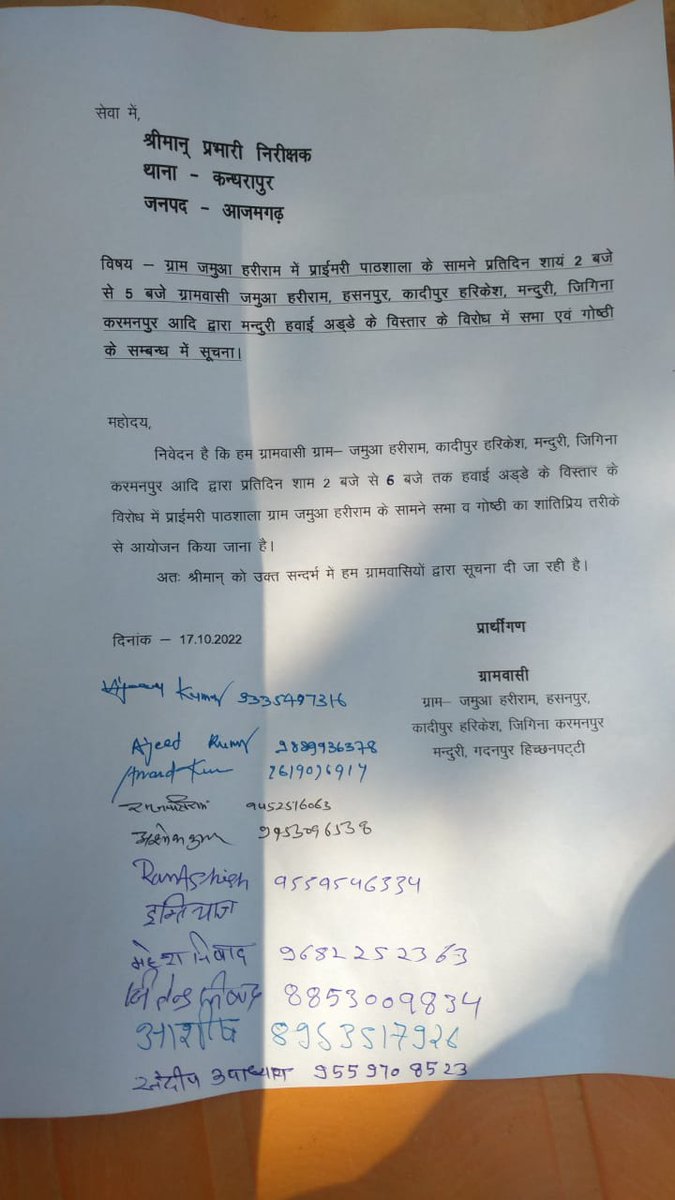 सेवा में,
श्रीमान् प्रभारी निरीक्षक
थाना - कन्धरापुर
जनपद - आजमगढ़
विषय – ग्राम जमुआ हरीराम में प्राईमरी पाठशाला के सामने प्रतिदिन शायं 2 बजे
से 5 बजे ग्रामवासी जमुआ हरीराम, हसनपुर, कादीपुर हरिकेश, मन्दुरी, जिगिना
करमनपुर आदि द्वारा मन्दुरी हवाई अड्डे के विस्तार के विरोध में सभा एवं गोष्ठी
के सम्बन्ध में सूचना।
महोदय,
निवेदन है कि हम ग्रामवासी ग्राम– जमुआ हरीराम, कादीपुर हरिकेश, मन्दुरी, जिगिना
करमनपुर आदि द्वारा प्रतिदिन शाम 2 बजे से 6 बजे तक हवाई अड्डे के विस्तार के
विरोध में प्राईमरी पाठशाला ग्राम जमुआ हरीराम के सामने सभा व गोष्ठी का शांतिप्रिय तरीके
से आयोजन किया जाना है।
अतः श्रीमान् को उक्त सन्दर्भ में हम ग्रामवासियों द्वारा सूचना दी जा रही है।
दिनांक – 17.10.2022
प्रार्थीगण
ग्रामवासी
ग्राम– जमुआ हरीराम, हसनपुर,
कादीपुर हरिकेश, जिगिना करमनपुर
मन्दुरी, गदनपुर हिच्छनपट्टी
Kumar 9335497316
Ajeed Kumar 9889936378
Anand Kum
9452516063
RamAshish 9559546334
इम्तियाज
महेश निषाद 9682252363
8853009834
आशीष 8953517926
संदीप उपाध्याय 9559708523